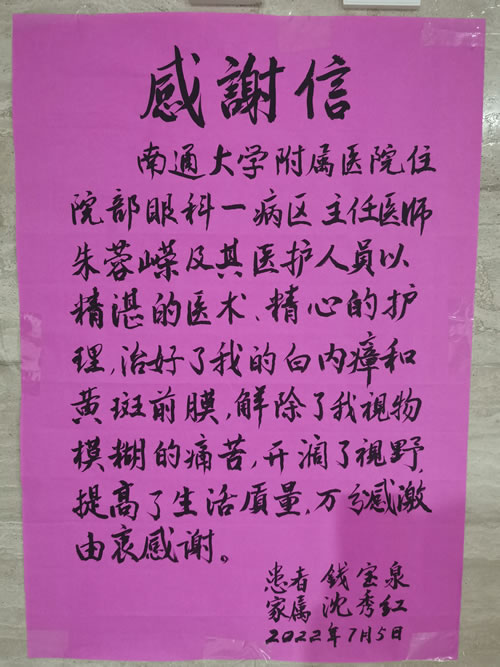 感謝信
南通大学附属医院住
院部眼科一病区主任医师
朱蓉嵘及其医护人员以
精湛的医术、精心的护
理,治好了我的白内瘴和
黄斑前膜,解除了我视物
模糊的痛苦,开阔了视野,
提高了生活质量,万分感激
由衷感谢。
患者 钱宝泉
家属 沈秀红
2022年7月5日